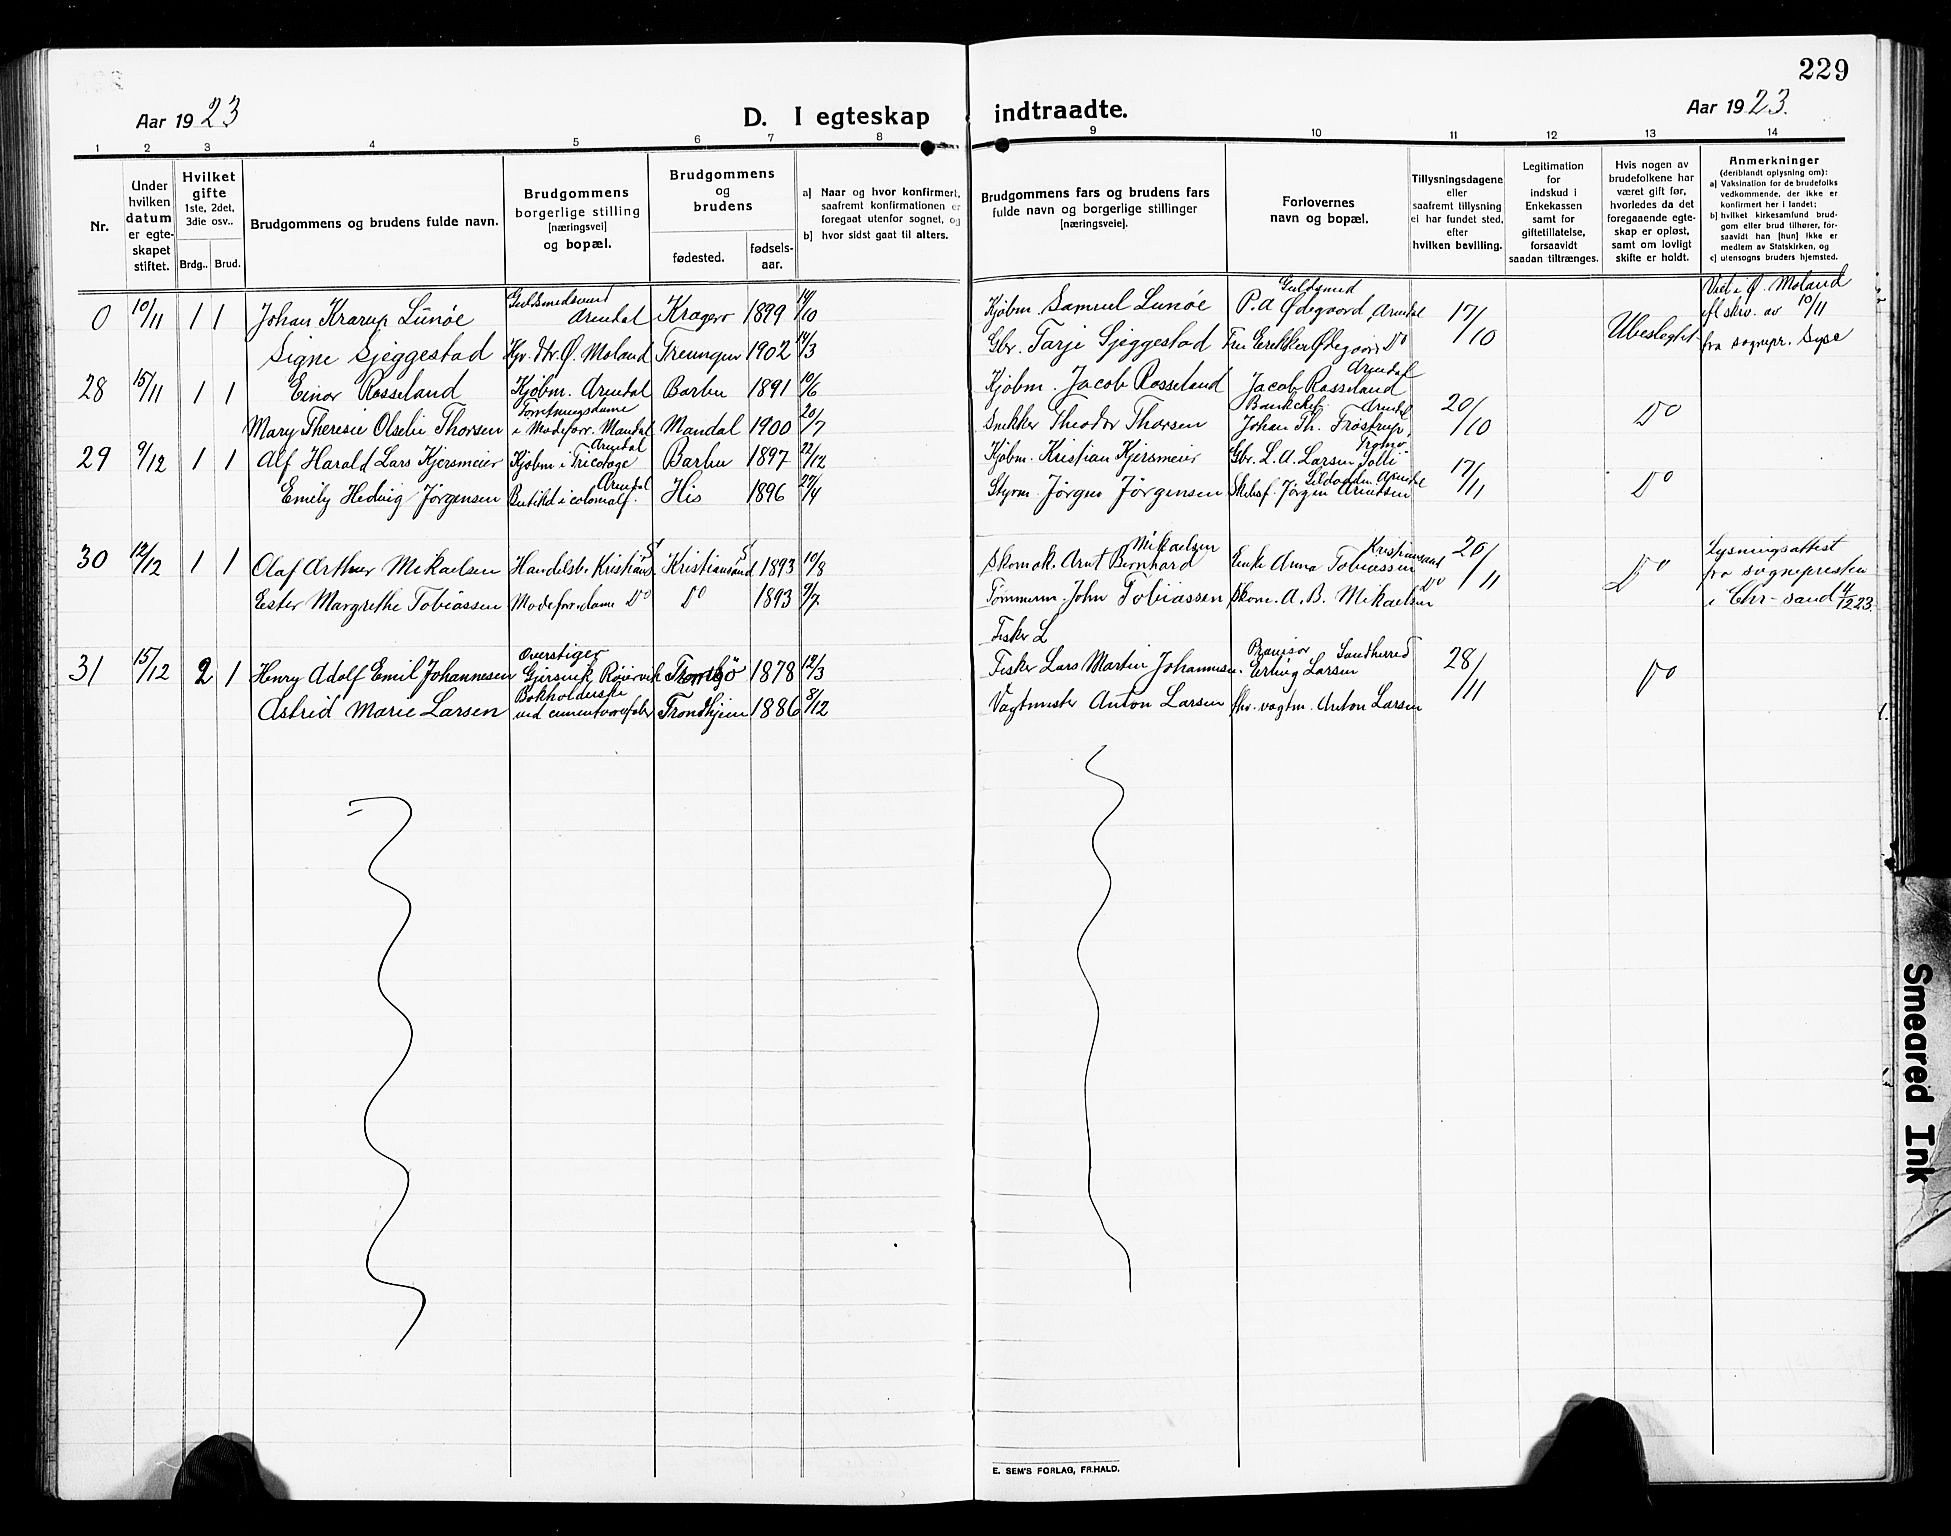 229
Aar 1923
D. I egteskap indtraadte.
Aar 1923.
1 2 3 4 5 6 7 8 9 10 11 12 13 14
Nr.
Under hvilken datum er egteskapet stiftet.
Hvilket gifte
1ste, 2det, 3die osv..
Brdg..
Brud.
Brudgommens og brudens fulde navn.
Brudgommens borgerlige stilling [næringsvei] og bopæl.
Brudgommens og brudens
fødested.
fødselsaar.
a) Naar og hvor konfirmert, saafremt konfirmationen er foregaat utenfor sognet, og
b) hvor sidst gaat til alters.
Brudgommens fars og brudens fars fulde navn og borgerlige stillinger [næringsveie].
Forlovernes navn og bopæl.
Tillysningsdagene eller saafremt tillysning ei har fundet sted, efter hvilken bevilling.
Legitimation for indskud i Enkekassen samt for giftetillatelse, forsaavidt saadan tiltrænges.
Hvis nogen av brudefolkene har været gift før, hvorledes da det foregaaende egteskap er opløst, samt om lovligt skifte er holdt.
Anmerkninger
(deriblandt oplysning om):
a) Vaksination for de brudefolks vedkommende, der ikke er konfirmert her i landet;
b) hvilket kirkesamfund brudgom eller brud tilhører, forsaavidt han [hun] ikke er medlem av Statskirken, og
c) utensogns bruders hjemsted.
0 10/11 1 1 Johan Krarup Lunöe Guldsmedsvend Arendal Kragerö 1899 14/10 Kjøbm Samuel Lunöe Guldsmed P. A Ødegaard, Arendal 17/10 Ubeslegtet Viet i Ø. Moland efl skriv. av 10/11 fra sognepr. Sype
Signe Sjeggestad Ø. Moland Treungen 1902 14/3 Gbr. Tarje Sjeggestad Fru Ødegaard Do
28 15/11 1 1 Einar Rosseland Kjøbm. Arendal Barbu 1891 10/6 Kjøbm. Jacob Rosseland Jacob Rosseland Arendal 20/10 Do
Mary Theresie Olselie Thorsen Forretningsdame i Modeforr. Mandal Mandal 1900 20/7 Snekker Theodor Thorsen Bankchef. Arendal Johan Th. Frøstrup
29 9/12 1 1 Alf Harald Lars Kjersmeier Kjøbm i Tricotage Arendal Barbu 1897 22/12 Kjøbm. Kristian Kjersmeier Gbr. L. A. Larsen Tromø 17/11 Do
Emily Hedvig Jörgensen Arendal His 1896 27/4 Styrm. Jørgen Jørgensen Skibsf. Jørgen Arentsen Arendal
30 12/12 1 1 Olaf Arthur Mikaelsen Handelsb. Kristians S Kristiansand S 1893 10/8 Skomak. Arnt Bernhard Mikaelsen Enke Anna Tobiassen Kristiansand 26/11 Do Lysningsattest fra sognepresten i Chr-sand 4/12 23.
Ester Margrethe Tobiassen Modeforr.dame Do Do 1893 9/7 Tömmerm. John Tobiassen Skom. A. B. Mikaelsen Do
Fisker L
31 15/12 2 1 Henry Adolf Emil Johannesen Overstiger Gjersvik, Röirvik Tromsö 1878 12/3 Fisker Lars Martin Johannesen. Provisor Sandherred Erling Larsen 28/11 Do
Astrid Marie Larsen Bokholderske ved cementvarefabr Trondhjem 1886 8/12 Vagtmester Anton Larsen fhv. vagtm. Anton Larsen
E. SEM'S FORLAG, FR.HALD.
Smeared Ink